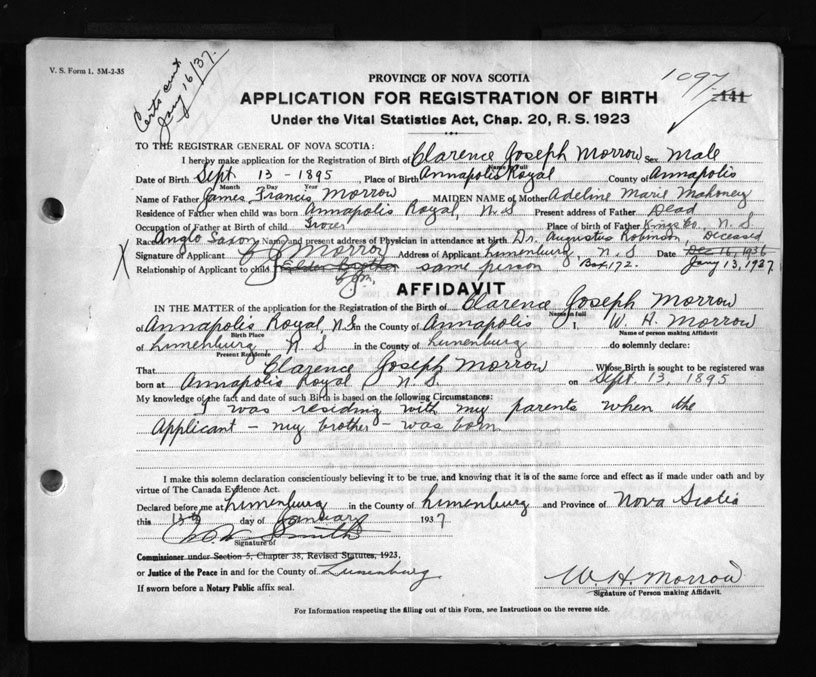 V. S. Form 1. 5M-2-35
Certs sent
Jany 16/37.
1097
441
PROVINCE OF NOVA SCOTIA
APPLICATION FOR REGISTRATION OF BIRTH
Under the Vital Statistics Act, Chap. 20, R. S. 1923
TO THE REGISTRAR GENERAL OF NOVA SCOTIA:
I hereby make application for the Registration of Birth of Clarence Joseph Morrow, Sex Male
Name in Full
Date of Birth Sept 13 - 1895 Place of Birth Annapolis Royal County of Annapolis
Month Day Year
Name of Father James Francis Morrow MAIDEN NAME of Mother Adeline Marie Mahoney
Residence of Father when child was born Annapolis Royal, N S Present address of Father Dead
Occupation of Father at Birth of child Grocer Place of birth of Father Kings Co. N. S
Race Anglo Saxon Name and present address of Physician in attendance at birth Dr. Augustus Robinson, Deceased
Signature of Applicant C J Morrow Address of Applicant Lunenburg, N. S Date Dec 16, 1936
Relationship of Applicant to child Elder Brother same person Box 172. Jany 13, 1937
CJM.
AFFIDAVIT
IN THE MATTER of the application for the Registration of the Birth of Clarence Joseph Morrow
Name in full
of Annapolis Royal, N.S in the County of Annapolis I, W. H. Morrow
Birth Place Name of person making Affidavit
of Lunenburg N S in the County of Lunenburg do solemnly declare:
Present Residence
That Clarence Joseph Morrow Whose Birth is sought to be registered was
born at Annapolis Royal, N. S. on Sept. 13, 1895
My knowledge of the fact and date of such Birth is based on the following Circumstances:
I was residing with my parents when the
Applicant - my brother - was born
I make this solemn declaration conscientiously believing it to be true, and knowing that it is of the same force and effect as if made under oath and by
virtue of The Canada Evidence Act.
Declared before me at Lunenburg in the County of Lunenburg and Province of Nova Scotia
this 13 day of January 1937
Smith
Signature of
Commissioner under Section 5, Chapter 38, Revised Statutes, 1923,
or Justice of the Peace in and for the County of Lunenburg
If sworn before a Notary Public affix seal.
W. H. Morrow
Signature of Person making Affidavit.
For Information respecting the filling out of this Form, see Instructions on the reverse side.